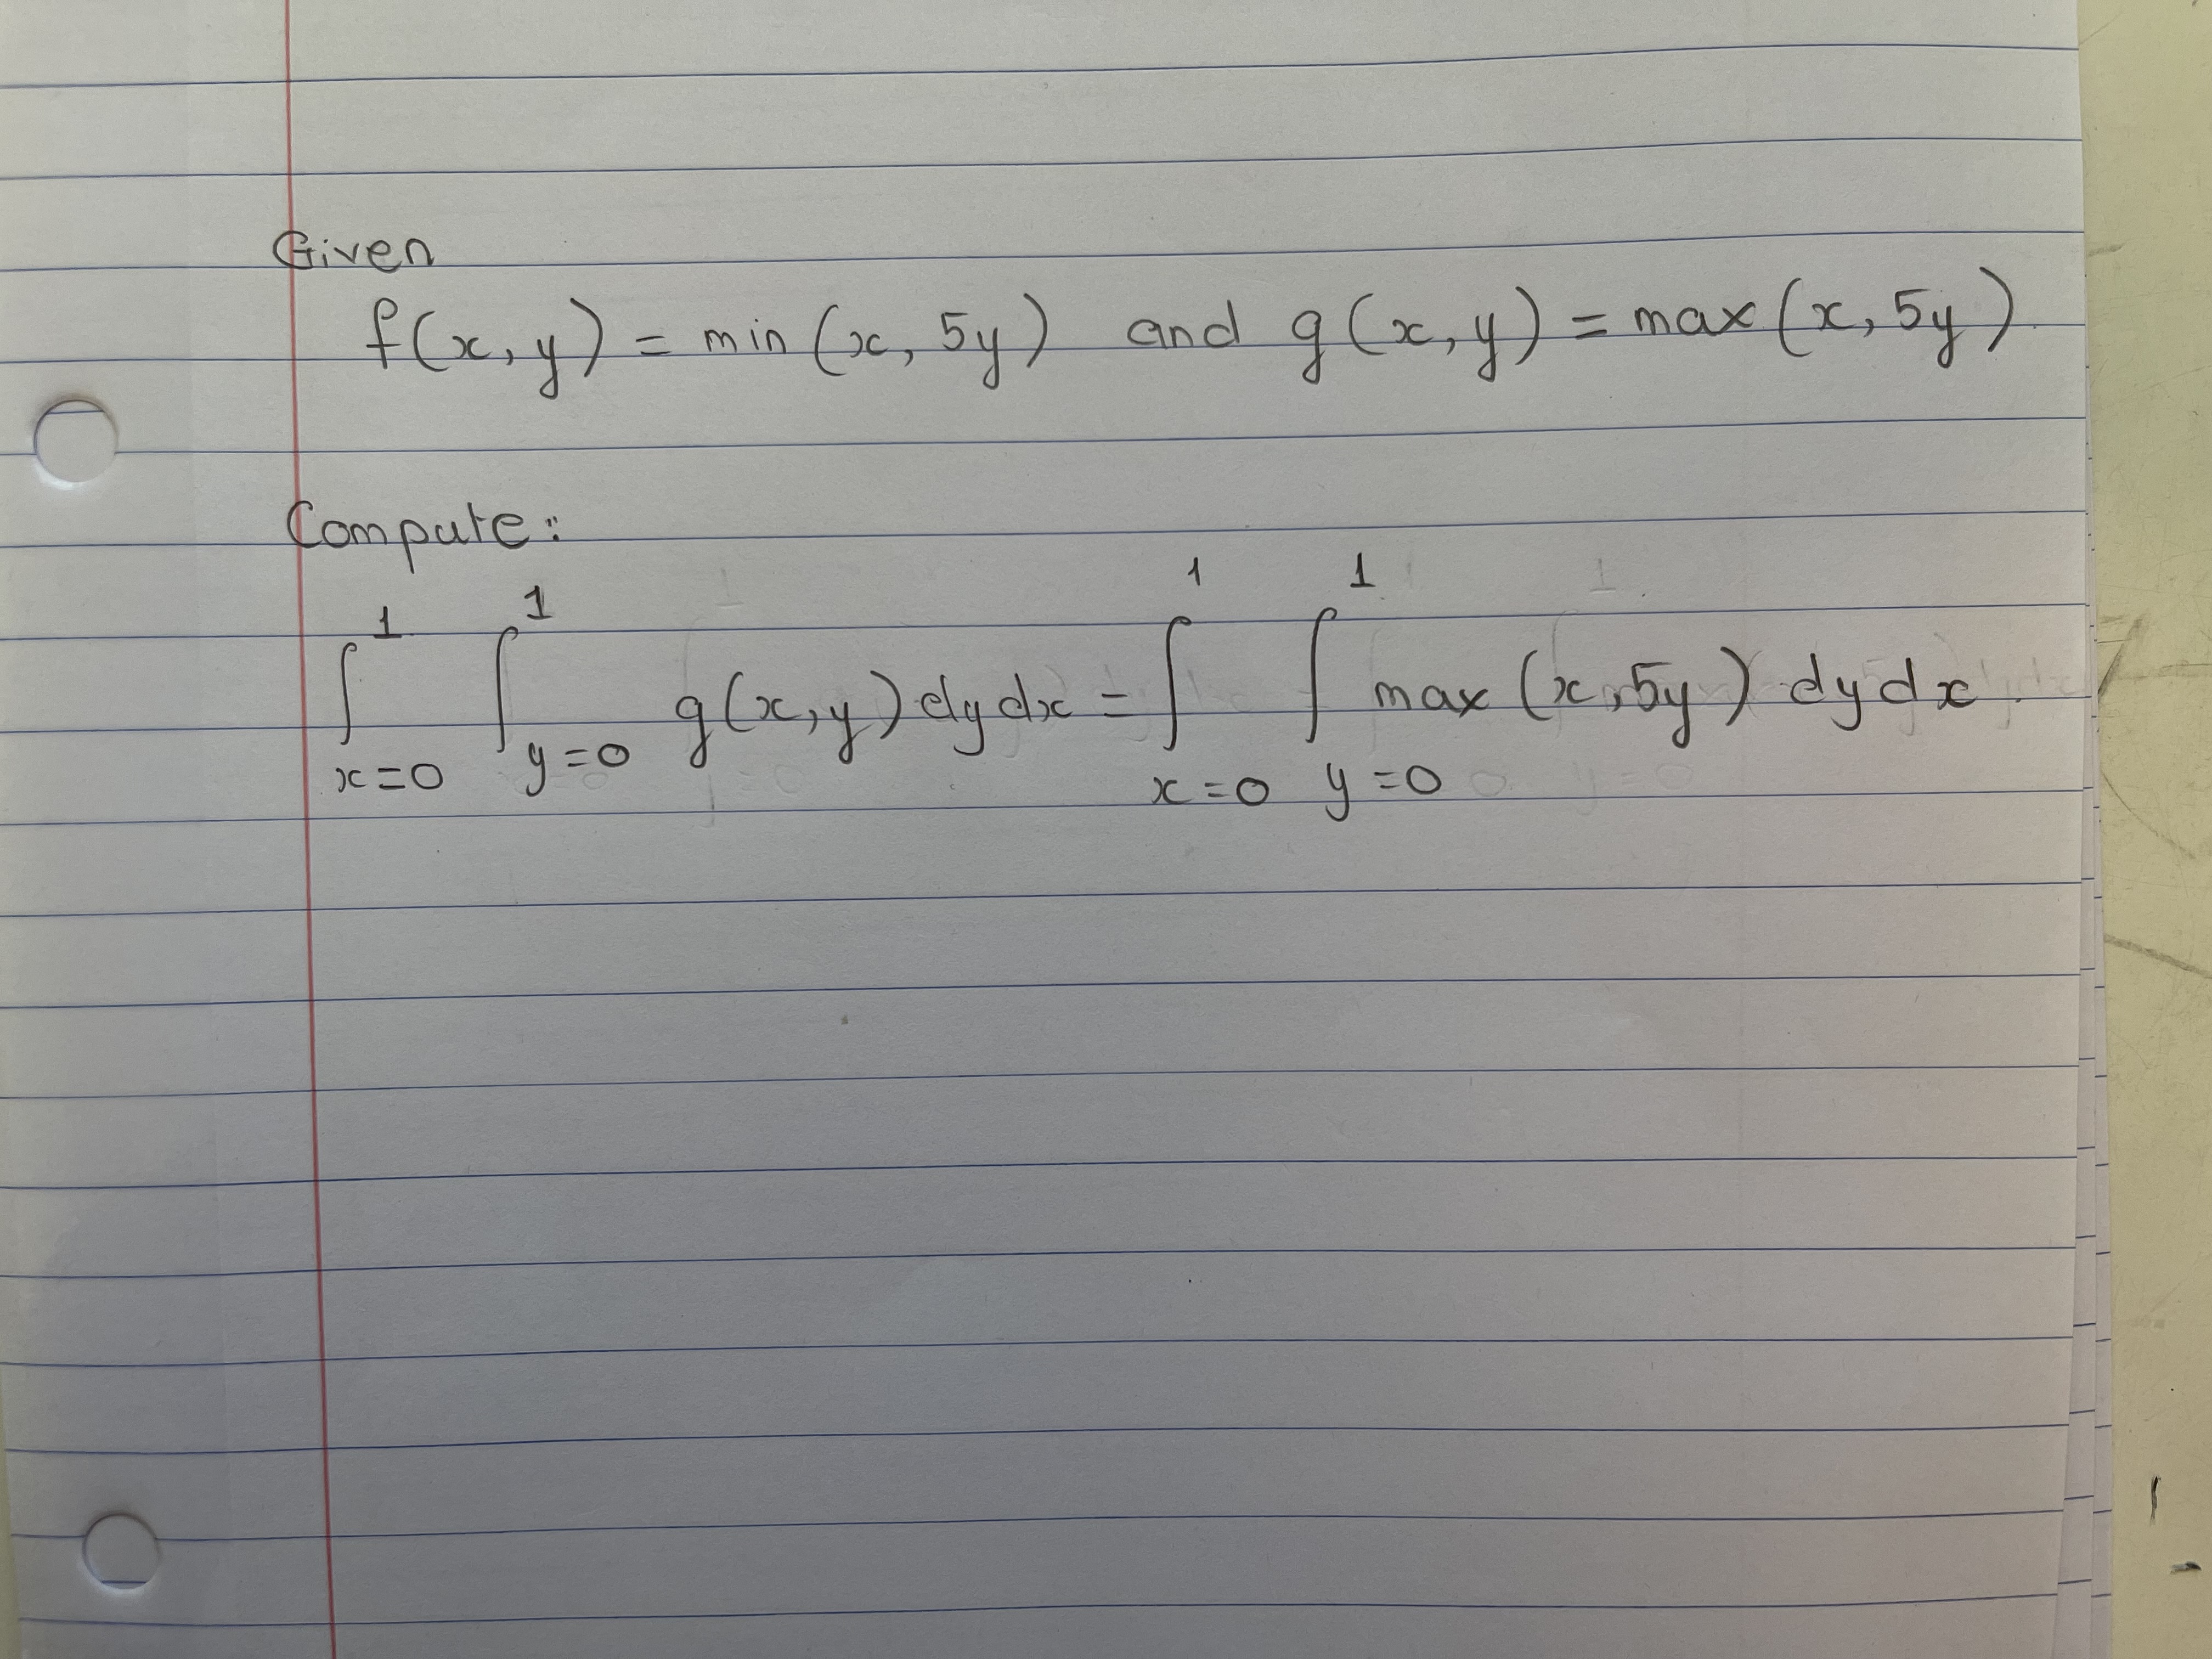 Given
f(x, y) = min (x, 5y) and g(x, y) = max (x, 5y).
Compute:
∫_{x=0}^{1} ∫_{y=0}^{1} g(x, y) dy dx = ∫_{x=0}^{1} ∫_{y=0}^{1} max (x, 5y) dy dx.